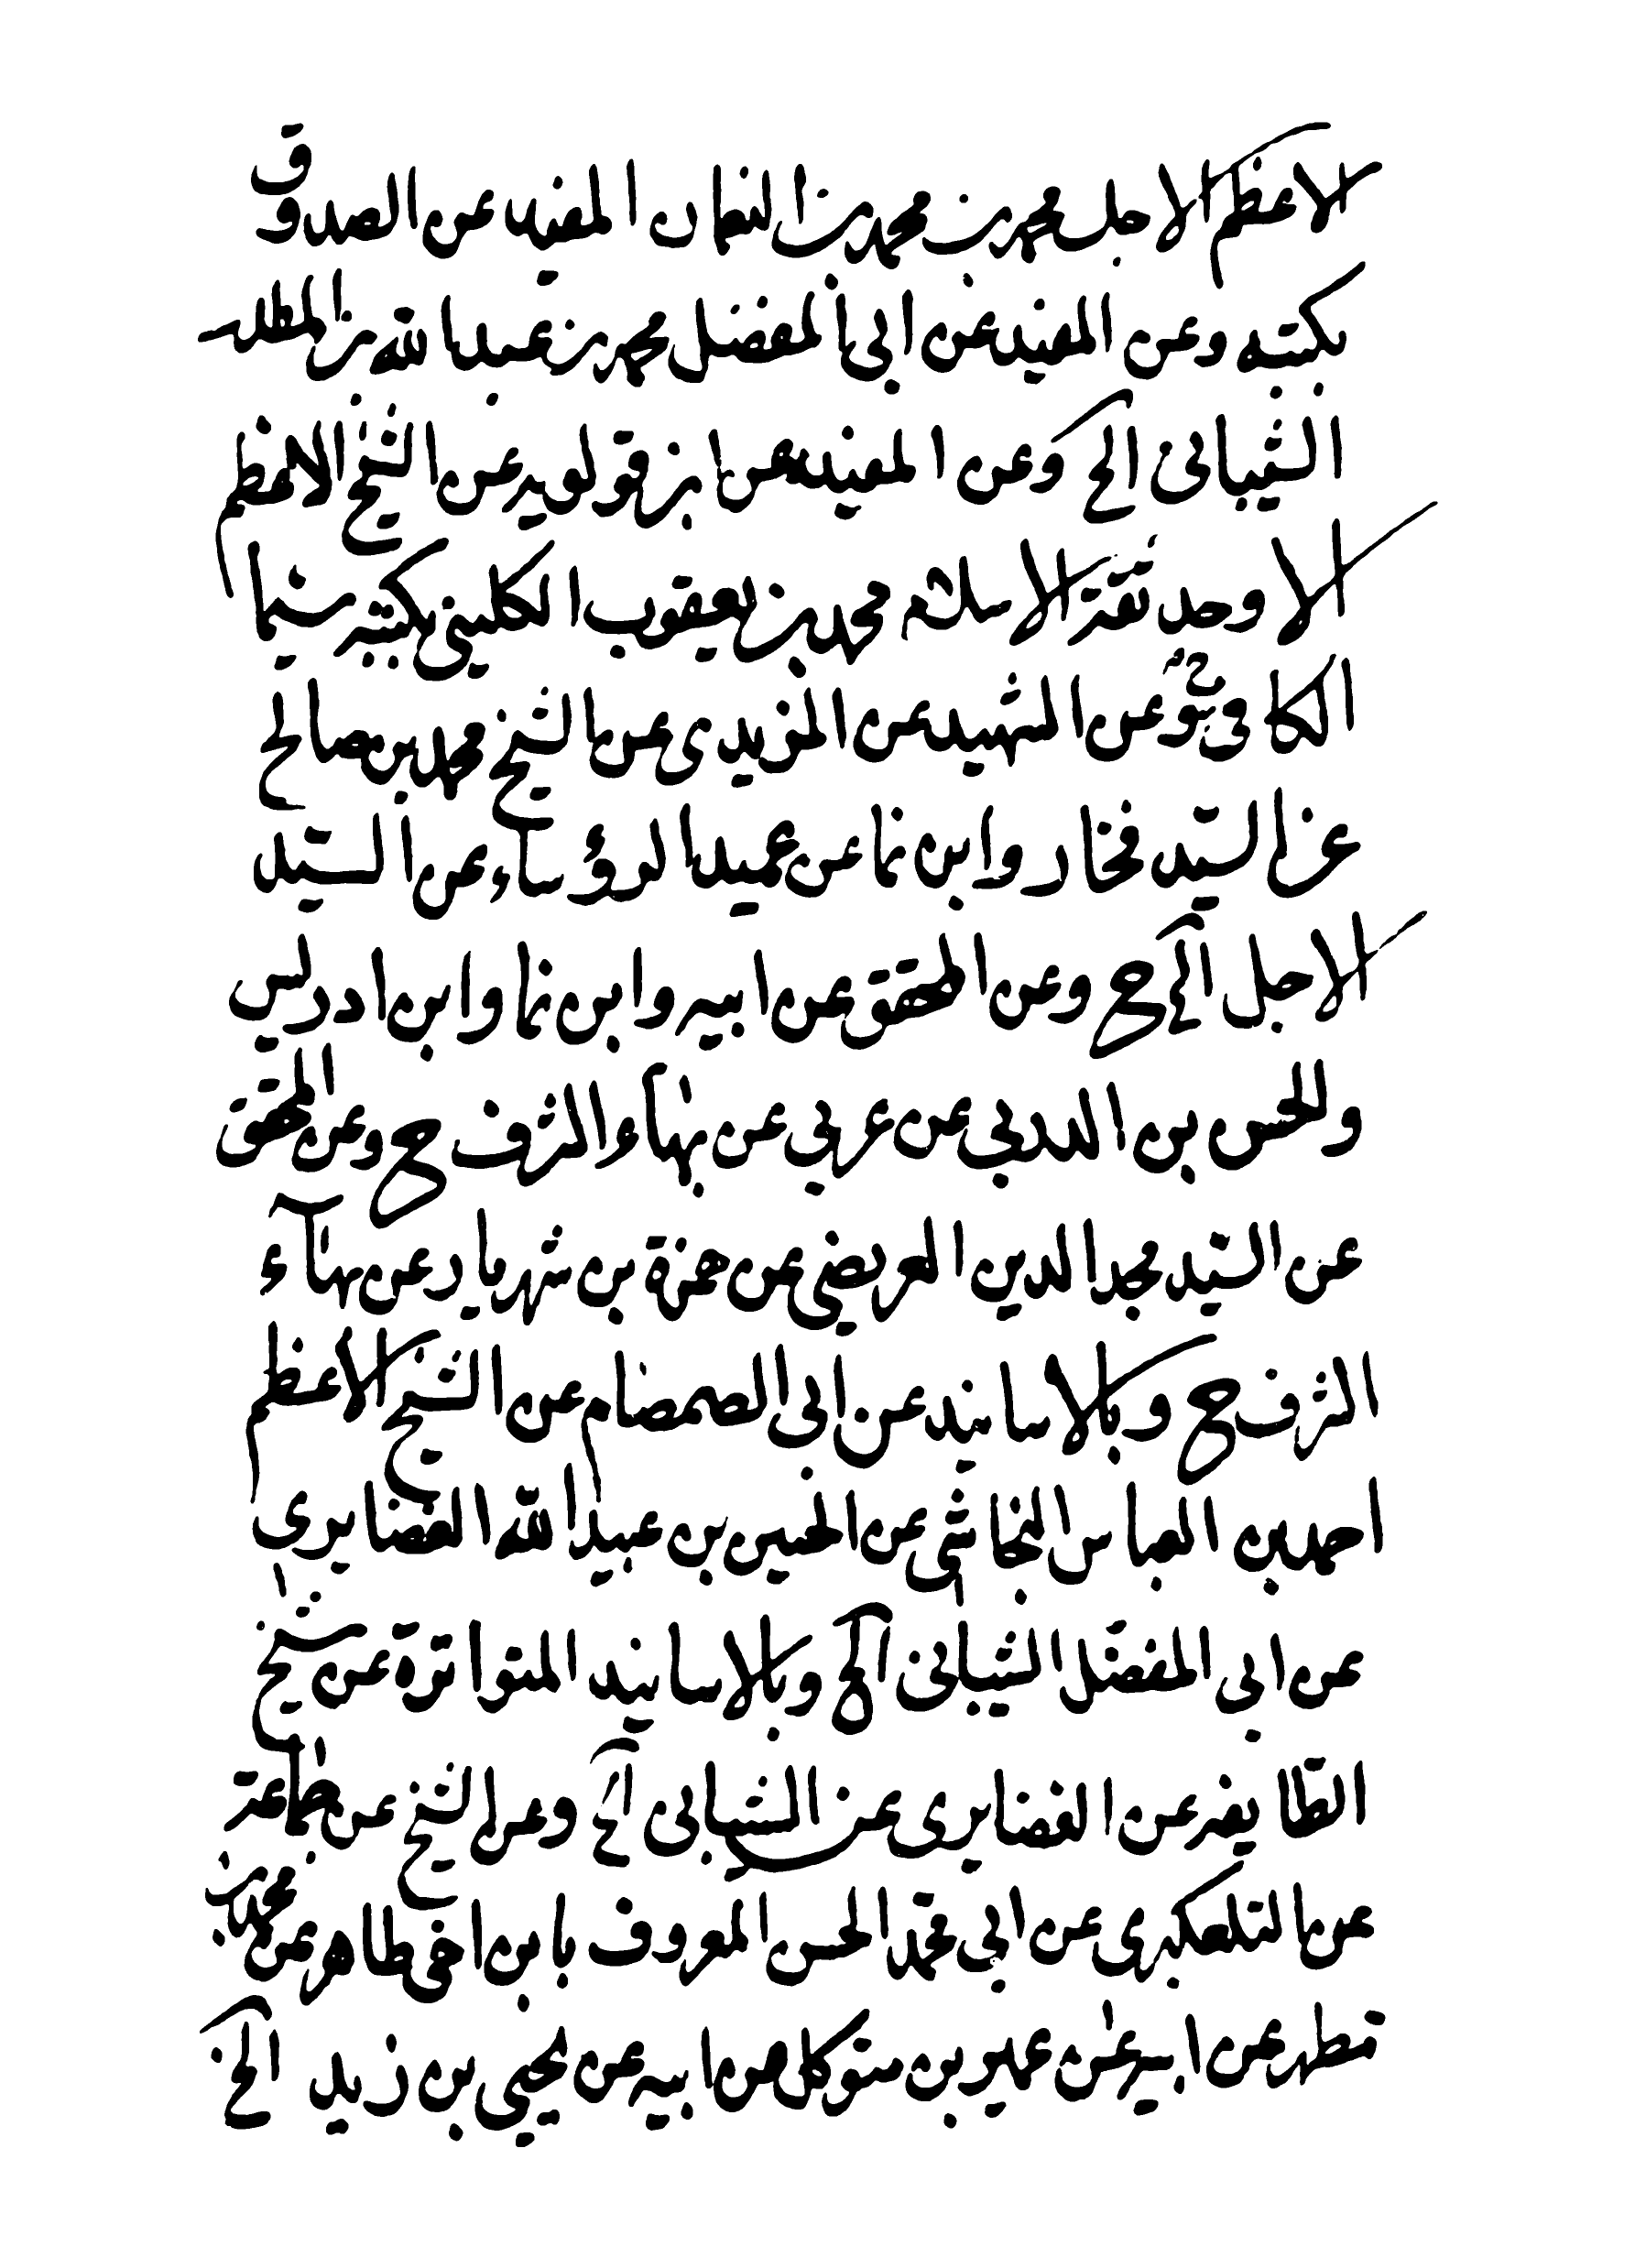 الاعظم الاجل محمد بن محمد بن النعمان المفيد عن الصدوق
بكتبه وعن المفيد عن ابي المفضل محمد بن عبد الله بن المطلب
الشيباني الخ وعن المفيد عن ابن قولويه عن الشيخ الاعظم
الاوحد ثقة الاسلام محمد بن يعقوب الكليني بكتبه سيما
الكافي عن الشهيد عن المزيدي عن الشيخ محمد بن صالح
عن السيد فخار وابن نما عن عميد الرؤساء عن السيد
الاجل الخ ح وعن المحقق عن ابيه وابن نما وابن ادريس
والحسن بن الدربي عن عربي عن بهاء الشرف ح وعن المحقق
عن السيد مجد الدين العريضي عن حمزة بن شهريار عن بهاء
الشرف ح وبالاسانيد عن ابي الصمصام عن الشيخ الاعظم
احمد بن العباس النجاشي عن الحسين بن عبيد الله الغضايري
عن ابي المفضل الشيباني الخ وبالاسانيد المتواترة عن شيخ
الطايفة عن الغضايري عن الشيباني الخ وعن الشيخ عن جماعة
عن التلعكبري عن ابي محمد الحسن المعروف بابن اخي طاهر عن محمد بن
مطهر عن ابيه عن عمير بن متوكل عن ابيه عن يحيى بن زيد الخ